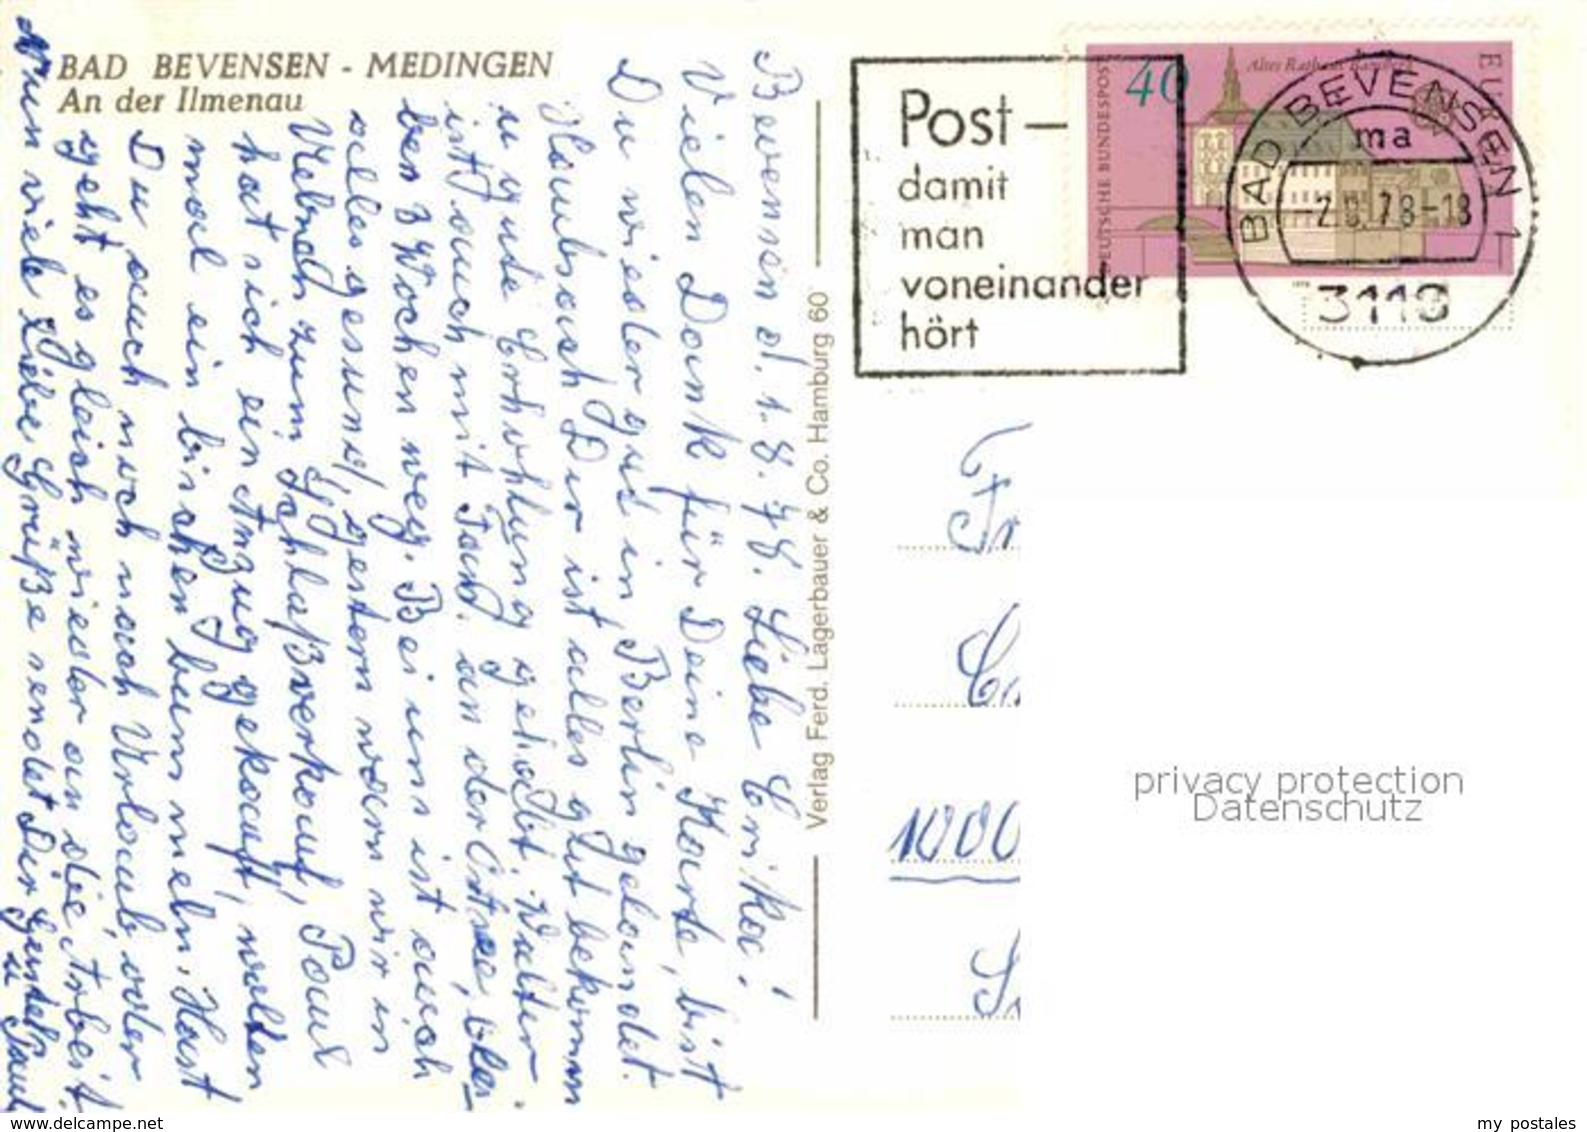 BAD BEVENSEN - MEDINGEN
An der Ilmenau
Bevensen d. 1.8.78. Liebe Erika!
Vielen Dank für Deine Karte, bist
Du wieder gut in Berlin gelandet.
Hawbsash Dir ist alles gut bekomm
u gute Erhohlung gehabt. Walter
ist auch mit Fam. an der Ostsee, blei-
ben 3 Wochen weg. Bei uns ist auch
alles gesund, gestern waren wir in
zum Schlaßverkauf, Paul
hat sich ein Anzug gekauft, wollten
mal ein bischen bummeln. Hast
Du auch noch nach Urlaub, oder
geht es gleich wieder an die Arbeit
Nun viele liebe Grüße sendet Dir
u Paul
Verlag Ferd. Lagerbauer & Co. Hamburg 60
Post –
damit
man
voneinander
hört
DEUTSCHE BUNDESPOST
40
Altes Rathaus Bamberg
EUROPA
BAD BEVENSEN 1
ma
-2.8.78-18
3118
Fr
1000
privacy protection
Datenschutz
www.delcampe.net
my postales